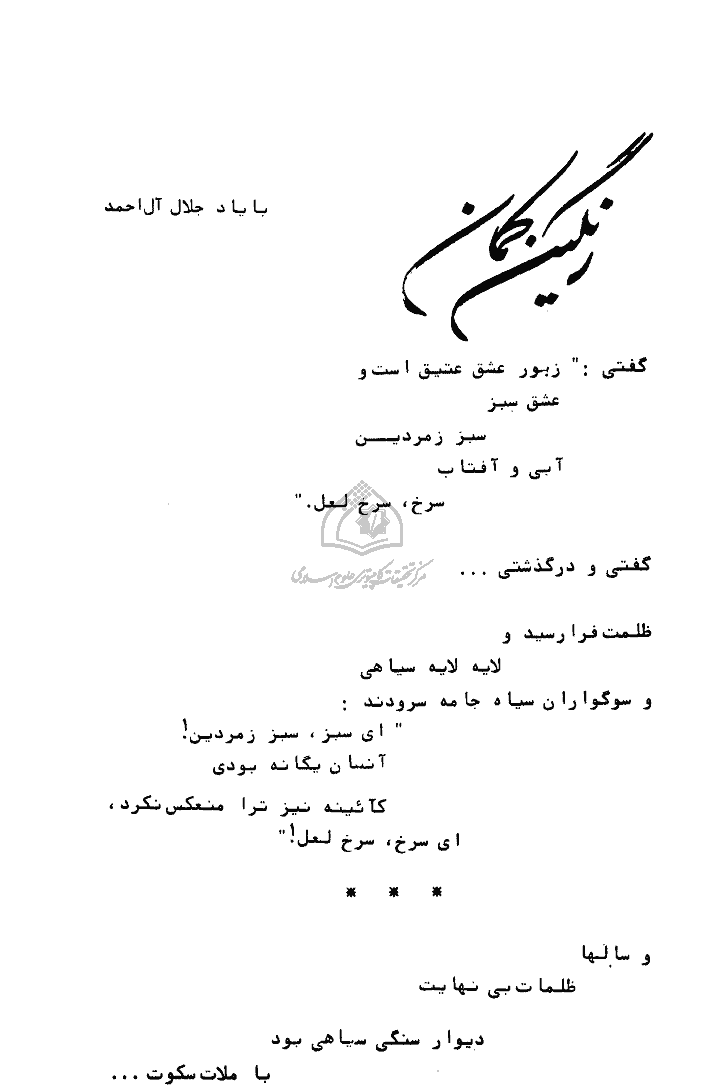 رنگین کمان
با یاد جلال آل‌احمد
گفتی :" زبور عشق عتیق است و
عشق سبز
سبز زمردیـــن
آبی و آفتاب
سرخ، سرخ لعل."
مرکز تحقیقات کامپیوتری علوم اسلامی
گفتی و درگذشتی ...
ظلمت فرا رسید و
لایه لایه سیاهی
و سوگواران سیاه جامه سرودند :
" ای سبز، سبز زمردین!
آنسان یگانه بودی
کآئینه نیز ترا منعکس نکرد،
ای سرخ، سرخ لعل!"
* * *
و سالها
ظلمات بی نهایت
دیوار سنگی سیاهی بود
با ملات سکوت ...